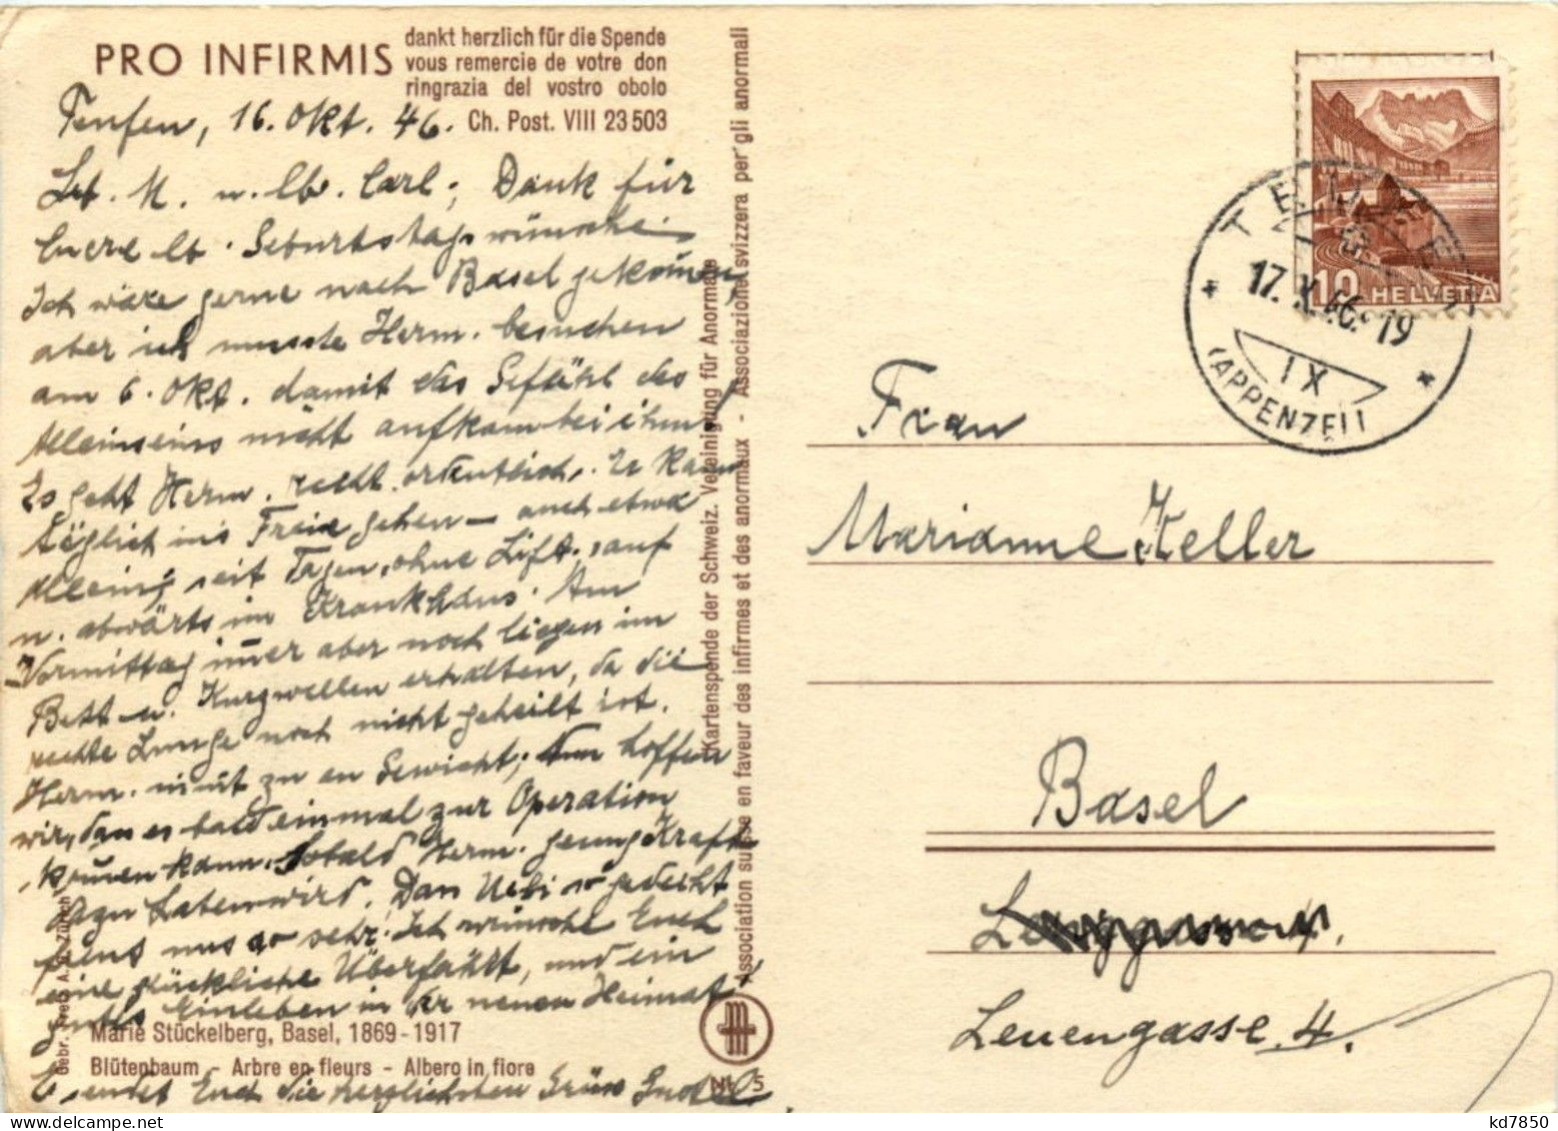 PRO INFIRMIS
dankt herzlich für die Spende
vous remercie de votre don
ringrazia del vostro obolo
Ch. Post. VIII 23503
Teufen, 16. Okt. 46.
M. u. lb. Carl; Dank für
Euere lb. Geburtstagswünsche.
Ich wäre gerne nach Basel gekommen,
aber ich musste Herm. besuchen
am 6. Okt. damit das Gefühl des
Alleinseins nicht aufkam bei ihm,
Es geht Herm. recht ordentlich. Er kann
täglich ins Freie gehen – auch etwa
Alleinig seit Tagen, ohne Lift, auf
u. abwärts im Krankhaus. Am
Vormittag immer aber noch liegen im
Bett u. Kurzwellen erhalten, da die
rechte Lunge noch nicht geheilt ist.
Herm. nimt zu an Gewicht; Nun hoffen
wir, das es bald einmal zur Operation
kommen kann. Sobald Herm. genug Kräfte
dazu haben wird. Das Ueli so gedeiht
freut uns so sehr! Ich wünsche Euch
eine glückliche Überfahrt, und ein
gutes Einleben in der neuen Heimat.
Es sendet Euch die herzlichsten Grüsse
Marie Stückelberg, Basel, 1869-1917
Blütenbaum - Arbre en fleurs - Albero in fiore
Nr. 5
Gebr. Fretz A.G. Zürich
Kartenspende der Schweiz. Vereinigung für Anormale
Association suisse en faveur des infirmes et des anormaux - Associazione svizzera per gli anormali
10 HELVETIA
TEUFEN
17.X.46.-19
IX
(APPENZELL)
Frau
Marianne Keller
Basel
Leuengasse 4.
kd7850